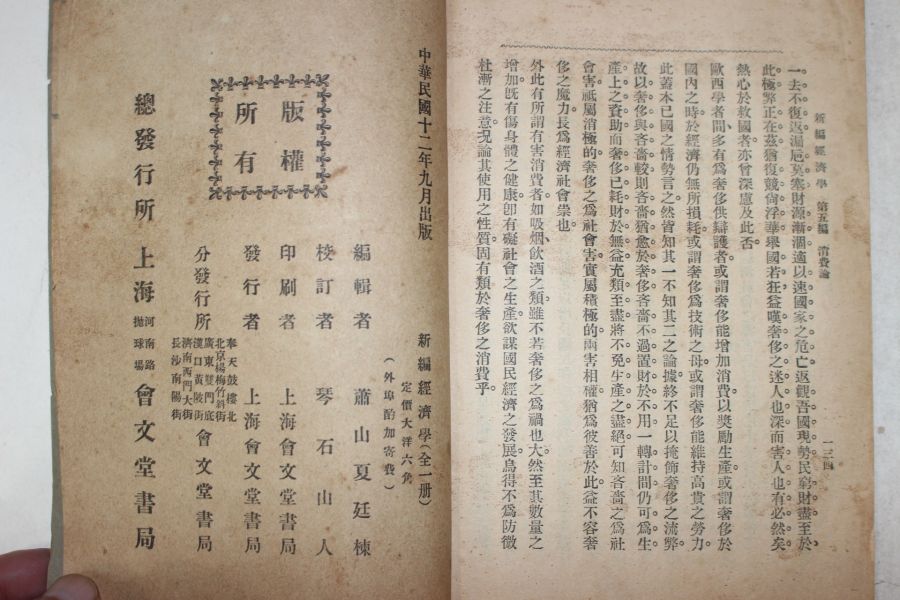 新編經濟學　第五編　消費論
一三四
一去不復返漏巵莫塞財源漸涸適以速國家之危亡返觀吾國現勢民窮財盡至於
此極弊正在茲猶復競尙浮華舉國若狂益嘆奢侈之迷人也深而害人也有必然矣
熱心於救國者亦曾深慮及此否
歐西學者間多有爲奢侈供辯護者或謂奢侈能增加消費以獎勵生產或謂奢侈於
國內之時於經濟仍無所損耗或謂奢侈爲技術之母或謂奢侈能維持高貴之勞力
此蓋本已國之情勢言之然皆知其一不知其二之論據終不足以掩飾奢侈之流弊
故以奢侈與吝嗇較則吝嗇猶愈於奢侈吝嗇不過置財於不用一轉計間仍可爲生
產上之資助而奢侈已耗財於無益充類至盡將不免生產之盡絕可知吝嗇之爲社
會害祗屬消極的奢侈之爲社會害實屬積極的兩害相權猶爲彼善於此益不容奢
侈之魔力長爲經濟社會祟也
外此有所謂有害消費者如吸烟飲酒之類雖不若奢侈之爲禍也大然至其數量之
增加旣有傷身體之健康卽有礙社會之生產欲謀國民經濟之發展烏得不爲防微
杜漸之注意況論其使用之性質固有類於奢侈之消費乎
中華民國十二年九月出版
新編經濟學（全一册）
定價大洋六角
（外埠酌加寄費）
版權
所有
編輯者　蕭山夏廷棟
校訂者　琴石山人
印刷者　上海會文堂書局
發行者　上海會文堂書局
分發行所
奉天鼓樓北
北京楊梅竹斜街
廣東雙門底
漢口黃陂街
濟南西門大街
長沙南陽街
會文堂書局
總發行所　上海
河南路
拋球場
會文堂書局